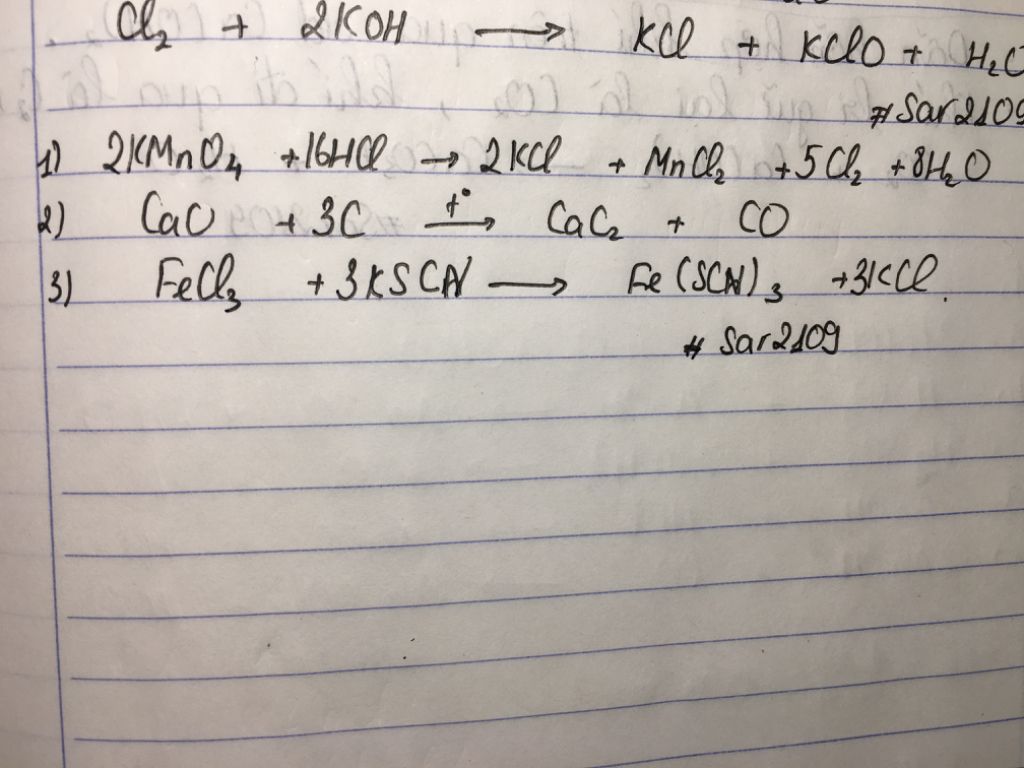 Cl₂ + 2KOH ⟶ KCl + KClO + H₂O
# Sar2109
1) 2KMnO₄ +16HCl → 2KCl + MnCl₂ +5Cl₂ +8H₂O
2) CaO + 3C –t°→ CaC₂ + CO
3) FeCl₃ + 3KSCN ⟶ Fe(SCN)₃ +3KCl.
# Sar2109